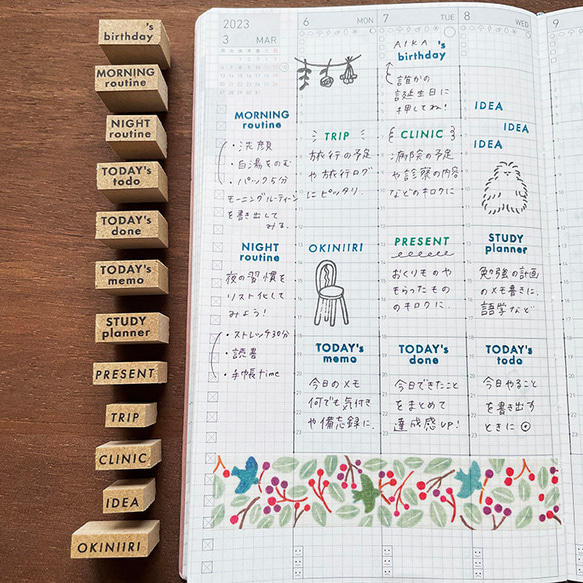 's
birthday
MORNING
routine
NIGHT
routine
TODAY's
todo
TODAY's
done
TODAY's
memo
STUDY
planner
PRESENT
TRIP
CLINIC
IDEA
OKINIIRI
2023
3 MAR
6 MON
7 TUE
8 WED
9
AIKA 's
birthday
誰かの
誕生日に
押してね!
IDEA
IDEA
IDEA
MORNING
routine
・洗顔
・白湯をのむ
・パック5分
モーニングルーティーン
を書き出して
みる。
TRIP
旅行の予定
や旅行ログ
にピッタリ。
CLINIC
病院の予定
や診察の内容
などのキロクに
NIGHT
routine
夜の習慣を
リスト化して
みよう!
・ストレッチ30分
・読書
・手帳time
OKINIIRI
PRESENT
おくりものや
もらったもの
のキロクに。
STUDY
planner
勉強の計画
のメモ書きに。
語学など
TODAY's
memo
今日のメモ
何でも気付き
や備忘録に。
TODAY's
done
今日できたこと
をまとめて
達成感UP!
TODAY's
todo
今日やること
を書き出す
ときに